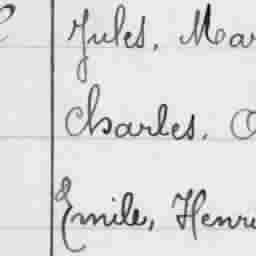 Jules, Mar
Charles, O
Emile, Henri